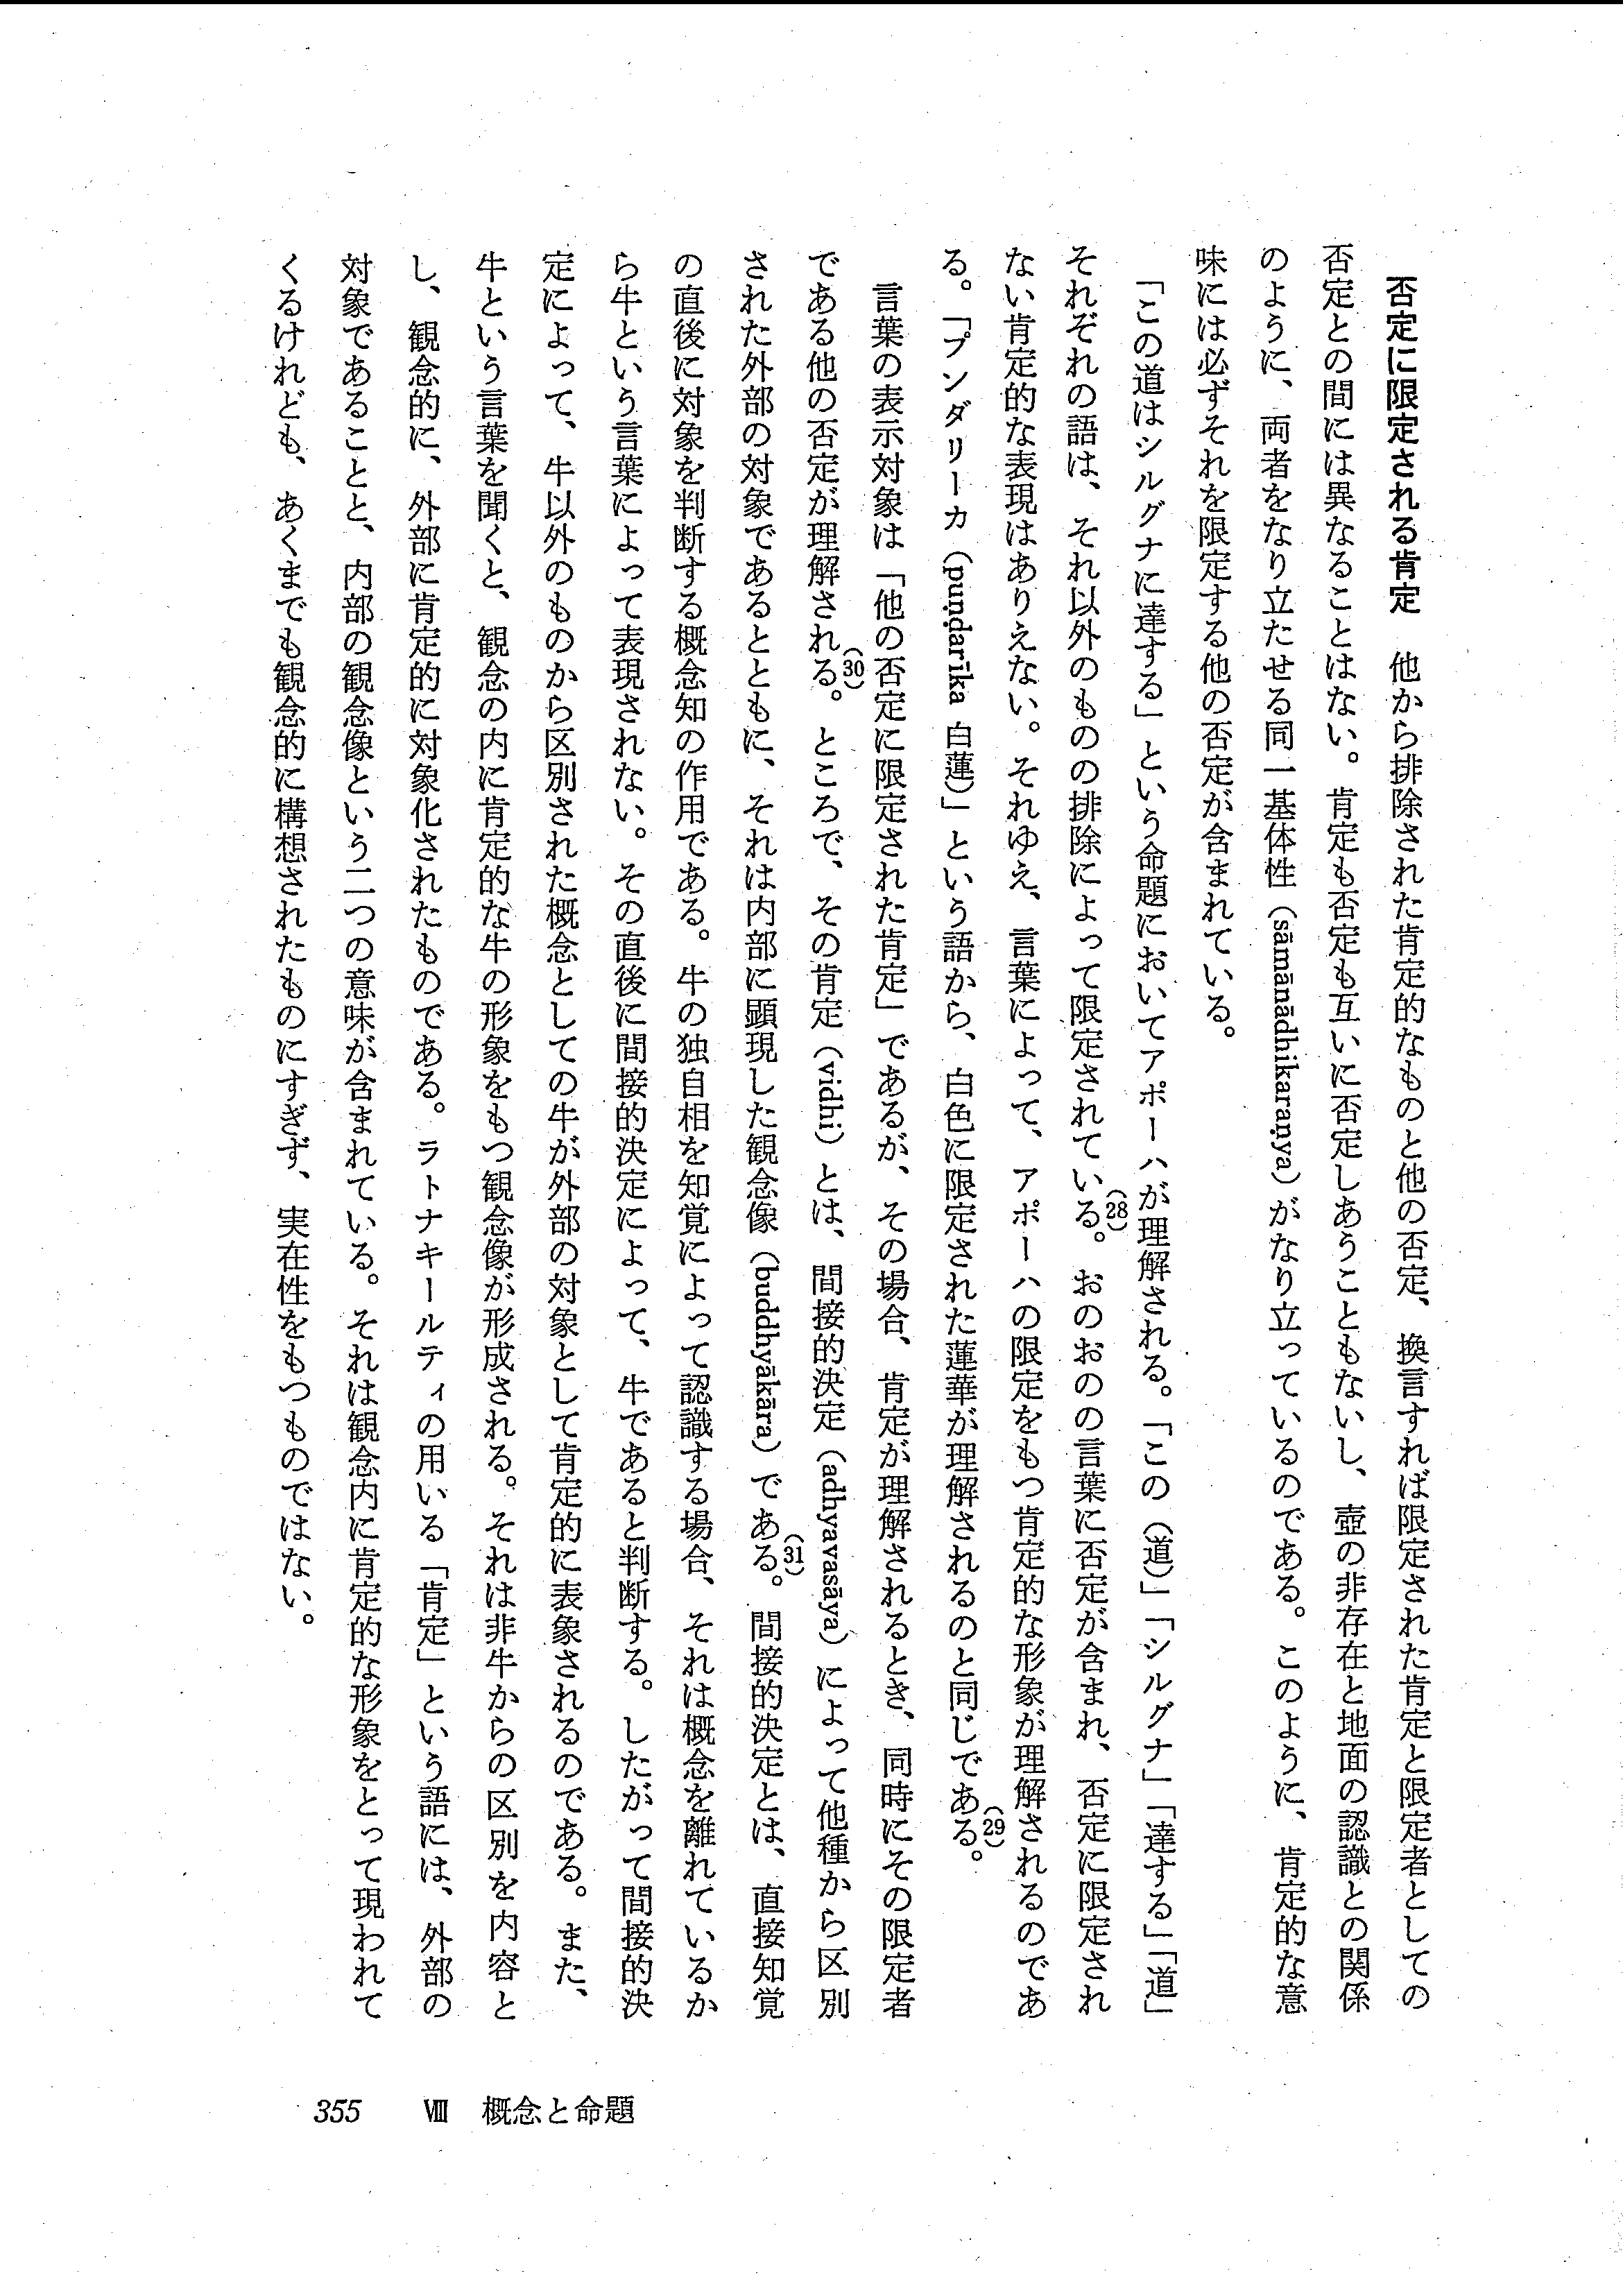 否定に限定される肯定　他から排除された肯定的なものと他の否定、換言すれば限定された肯定と限定者としての
否定との間には異なることはない。肯定も否定も互いに否定しあうこともないし、壺の非存在と地面の認識との関係
のように、両者をなり立たせる同一基体性（sāmānādhikaraṇya）がなり立っているのである。このように、肯定的な意
味には必ずそれを限定する他の否定が含まれている。
「この道はシルグナに達する」という命題においてアポーハが理解される。「この（道）」「シルグナ」「達する」「道」
それぞれの語は、それ以外のものの排除によって限定されている。(28)おのおのの言葉に否定が含まれ、否定に限定され
ない肯定的な表現はありえない。それゆえ、言葉によって、アポーハの限定をもつ肯定的な形象が理解されるのであ
る。「プンダリーカ（puṇḍarīka 白蓮）」という語から、白色に限定された蓮華が理解されるのと同じである。(29)
言葉の表示対象は「他の否定に限定された肯定」であるが、その場合、肯定が理解されるとき、同時にその限定者
である他の否定が理解される。(30)ところで、その肯定（vidhi）とは、間接的決定（adhyavasāya）によって他種から区別
された外部の対象であるとともに、それは内部に顕現した観念像（buddhyākāra）である。(31)間接的決定とは、直接知覚
の直後に対象を判断する概念知の作用である。牛の独自相を知覚によって認識する場合、それは概念を離れているか
ら牛という言葉によって表現されない。その直後に間接的決定によって、牛であると判断する。したがって間接的決
定によって、牛以外のものから区別された概念としての牛が外部の対象として肯定的に表象されるのである。また、
牛という言葉を聞くと、観念の内に肯定的な牛の形象をもつ観念像が形成される。それは非牛からの区別を内容と
し、観念的に、外部に肯定的に対象化されたものである。ラトナキールティの用いる「肯定」という語には、外部の
対象であることと、内部の観念像という二つの意味が含まれている。それは観念内に肯定的な形象をとって現われて
くるけれども、あくまでも観念的に構想されたものにすぎず、実在性をもつものではない。
355　Ⅷ　概念と命題